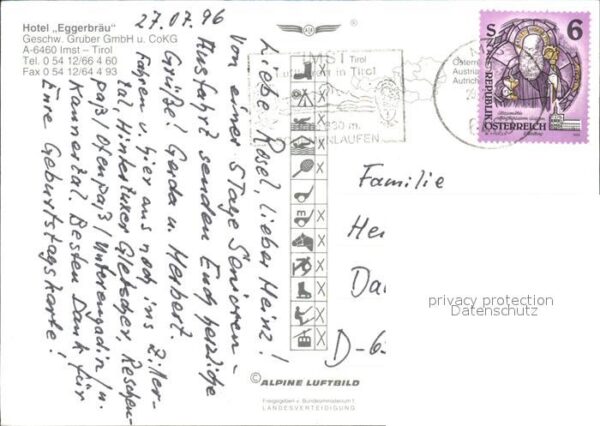 Hotel „Eggerbräu"
Geschw. Gruber GmbH u. CoKG
A-6460 Imst – Tirol
Tel. 0 54 12/66 4 60
Fax 0 54 12/64 4 93
27.07.96
Liebe Rosel, lieber Heinz!
Von einer 5 Tage Senioren-
Ausfahrt senden Euch herzliche
Grüße! Gerda u. Herbert.
fahren v. hier aus noch ins Ziller-
tal, Hintertuxer Gletscher, Reschen-
paß/Ofenpaß/Unterengadin/u.
Kaunertal. Besten Dank für
Eure Geburtstagskarte!
IMST Tirol
in Tirol
LAUFEN
S
6
REPUBLIK
ÖSTERREICH
Familie
He
Da
D-6
privacy protection
Datenschutz
© ALPINE LUFTBILD
Freigegeben v. Bundesministerium f.
LANDESVERTEIDIGUNG